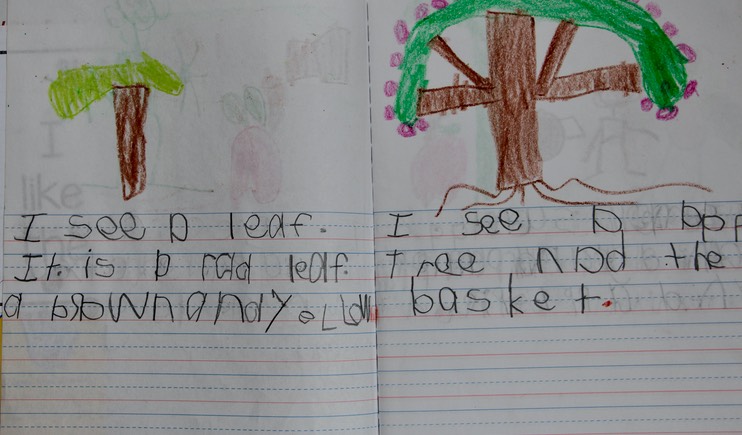 I see a leaf.
It. is a rad leaf.
a brown and yellow
I see a app
Tree nad the
basket.